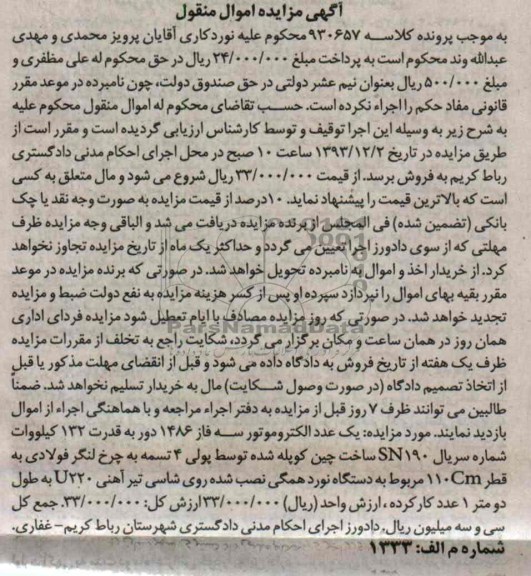 آگهی مزایده اموال منقول
به موجب پرونده کلاسه ۹۳۰۶۵۷ محکوم علیه نوردکاری آقایان پرویز محمدی و مهدی
عبدالله وند محکوم است به پرداخت مبلغ ۲۴/۰۰۰/۰۰۰ ریال در حق محکوم له علی مظفری و
مبلغ ۵۰۰/۰۰۰ ریال بعنوان نیم عشر دولتی در حق صندوق دولت، چون نامبرده در موعد مقرر
قانونی مفاد حکم را اجراء نکرده است. حسب تقاضای محکوم له اموال منقول محکوم علیه
به شرح زیر به وسیله این اجرا توقیف و توسط کارشناس ارزیابی گردیده است و مقرر است از
طریق مزایده در تاریخ ۱۳۹۳/۱۲/۲ ساعت ۱۰ صبح در محل اجرای احکام مدنی دادگستری
رباط کریم به فروش برسد. از قیمت ۳۳/۰۰۰/۰۰۰ ریال شروع می شود و مال متعلق به کسی
است که بالاترین قیمت را پیشنهاد نماید. ۱۰درصد از قیمت مزایده به صورت وجه نقد یا چک
بانکی (تضمین شده) فی المجلس از برنده مزایده دریافت می شد و الباقی وجه مزایده ظرف
مهلتی که از سوی دادورز اجرا تعیین می گردد و حداکثر یک ماه از تاریخ مزایده تجاوز نخواهد
کرد. از خریدار اخذ و اموال به نامبرده تحویل خواهد شد. در صورتی که برنده مزایده در موعد
مقرر بقیه بهای اموال را نپردازد سپرده او پس از کسر هزینه مزایده به نفع دولت ضبط و مزایده
تجدید خواهد شد. در صورتی که روز مزایده مصادف با ایام تعطیل شود مزایده فردای اداری
همان روز در همان ساعت و مکان برگزار می گردد، شکایت راجع به تخلف از مقررات مزایده
ظرف یک هفته از تاریخ فروش به دادگاه داده می شود و قبل از انقضای مهلت مذکور یا قبل
از اتخاذ تصمیم دادگاه (در صورت وصول شکایت) مال به خریدار تسلیم نخواهد شد. ضمناً
طالبین می توانند ظرف ۷ روز قبل از مزایده به دفتر اجراء مراجعه و با هماهنگی اجراء از اموال
بازدید نمایند. مورد مزایده: یک عدد الکتروموتور سه فاز ۱۴۸۶ دور به قدرت ۱۳۲ کیلووات
شماره سریال SN۱۹۰ ساخت چین کوپله شده توسط پولی ۴ تسمه به چرخ لنگر فولادی به
قطر ۱۱۰Cm مربوط به دستگاه نورد همگی نصب شده روی شاسی تیر آهنی U۲۲۰ به طول
دو متر ۱ عدد کارکرده، ارزش واحد (ریال) ۳۳/۰۰۰/۰۰۰ ارزش کل: ۳۳/۰۰۰/۰۰۰. جمع کل
سی و سه میلیون ریال. دادورز اجرای احکام مدنی دادگستری شهرستان رباط کریم- غفاری.
شماره م الف: ۱۳۳۳
ParsNamadData